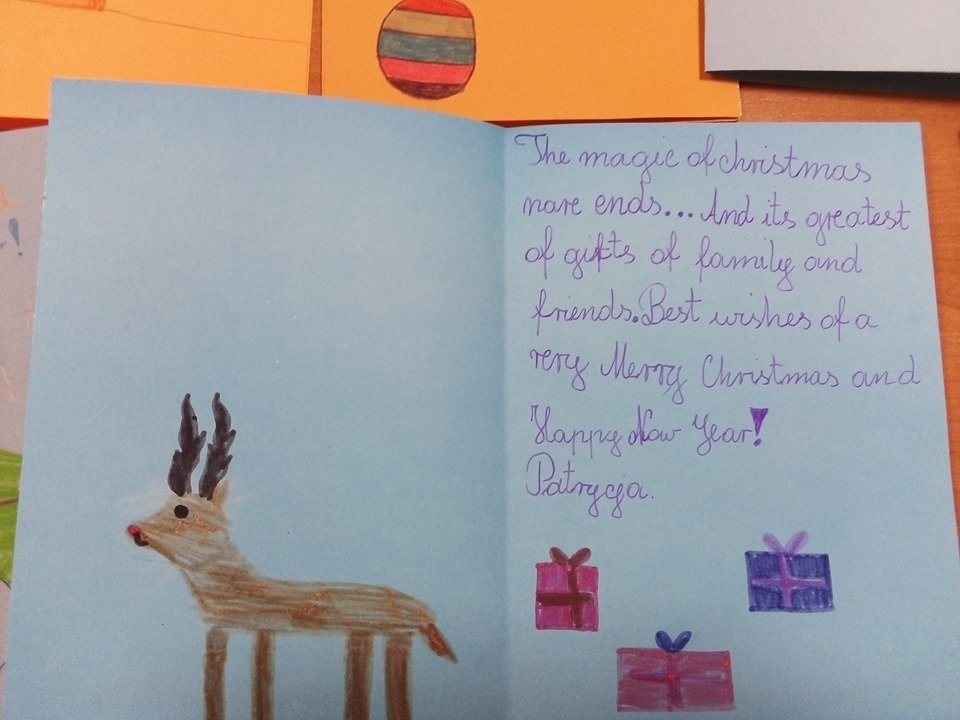 The magic of christmas
nare ends... And its greatest
of gifts of family and
friends. Best wishes of a
very Merry Christmas and
Happy Now Year!
Patrycja.